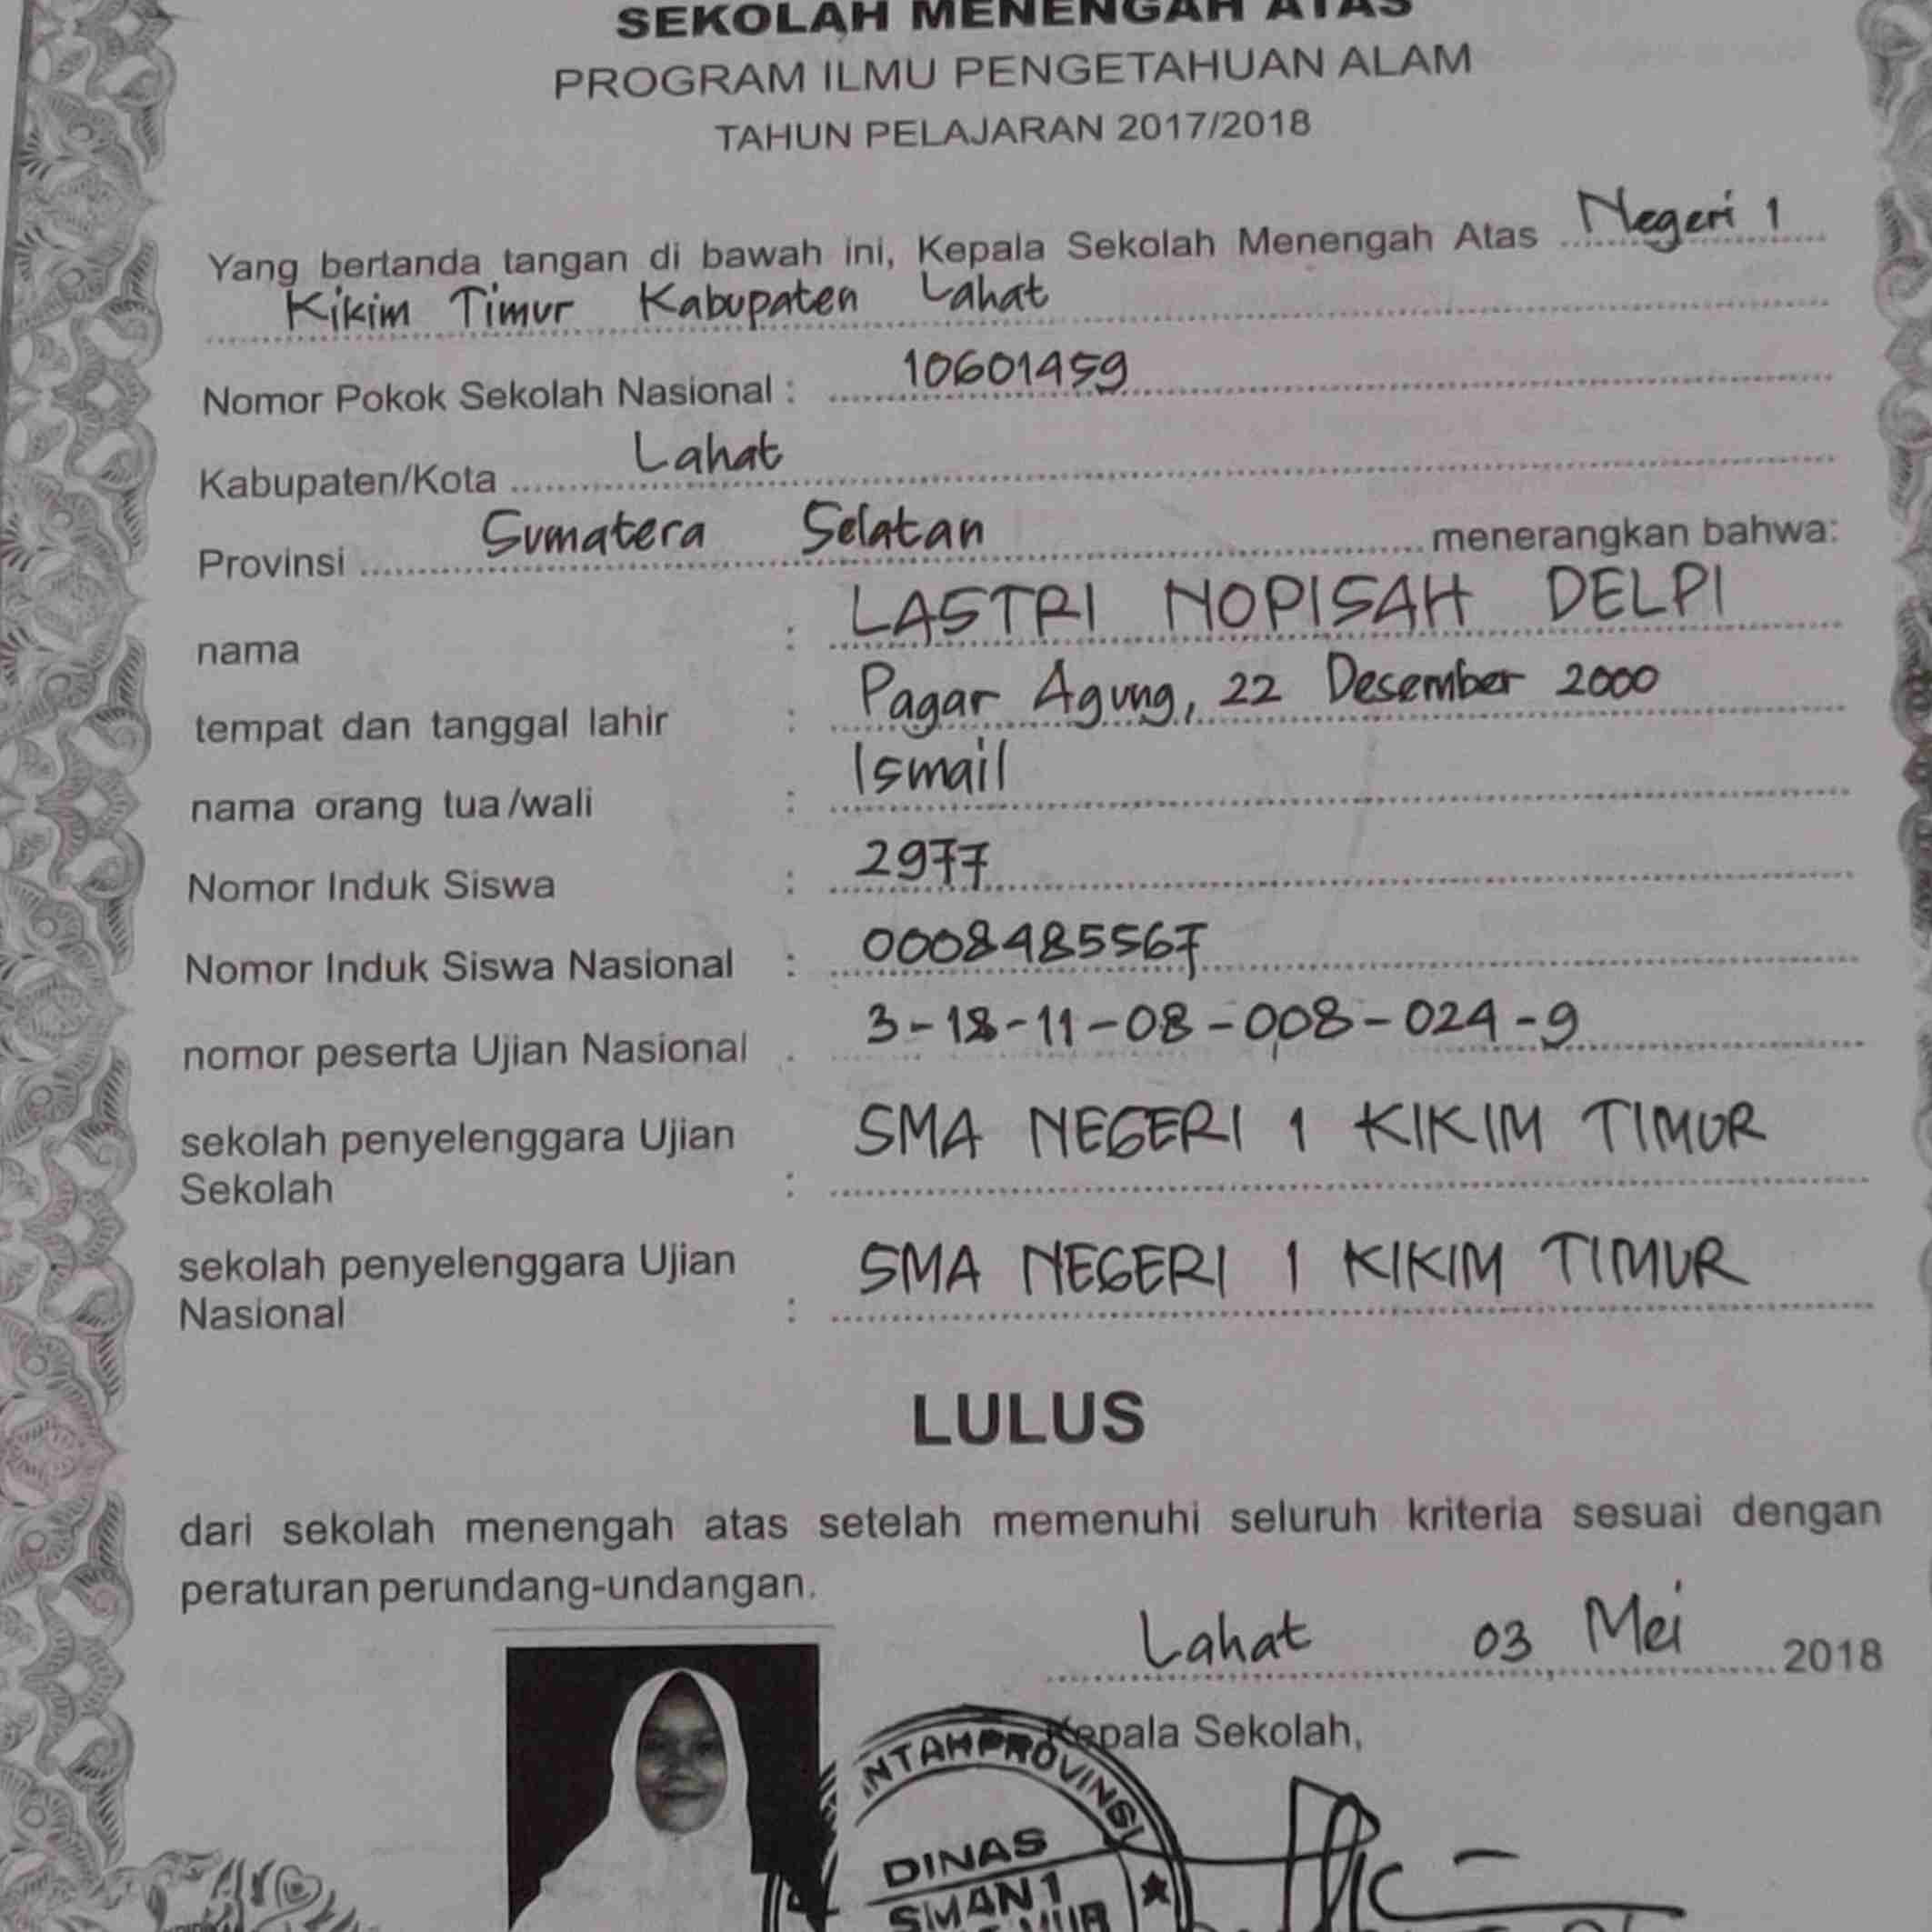 SEKOLAH MENENGAH ATAS
PROGRAM ILMU PENGETAHUAN ALAM
TAHUN PELAJARAN 2017/2018
Yang bertanda tangan di bawah ini, Kepala Sekolah Menengah Atas Negeri 1
Kikim Timur Kabupaten Lahat
Nomor Pokok Sekolah Nasional : 10601459
Kabupaten/Kota Lahat
Provinsi Sumatera Selatan menerangkan bahwa:
nama : LASTRI NOPISAH DELPI
tempat dan tanggal lahir : Pagar Agung, 22 Desember 2000
nama orang tua/wali : Ismail
Nomor Induk Siswa : 2977
Nomor Induk Siswa Nasional : 0008485567
nomor peserta Ujian Nasional : 3-18-11-08-008-024-9
sekolah penyelenggara Ujian
Sekolah : SMA NEGERI 1 KIKIM TIMUR
sekolah penyelenggara Ujian
Nasional : SMA NEGERI 1 KIKIM TIMUR
LULUS
dari sekolah menengah atas setelah memenuhi seluruh kriteria sesuai dengan
peraturan perundang-undangan.
Lahat 03 Mei 2018
Kepala Sekolah,
NTAH PROVINSI
DINAS
SMAN 1